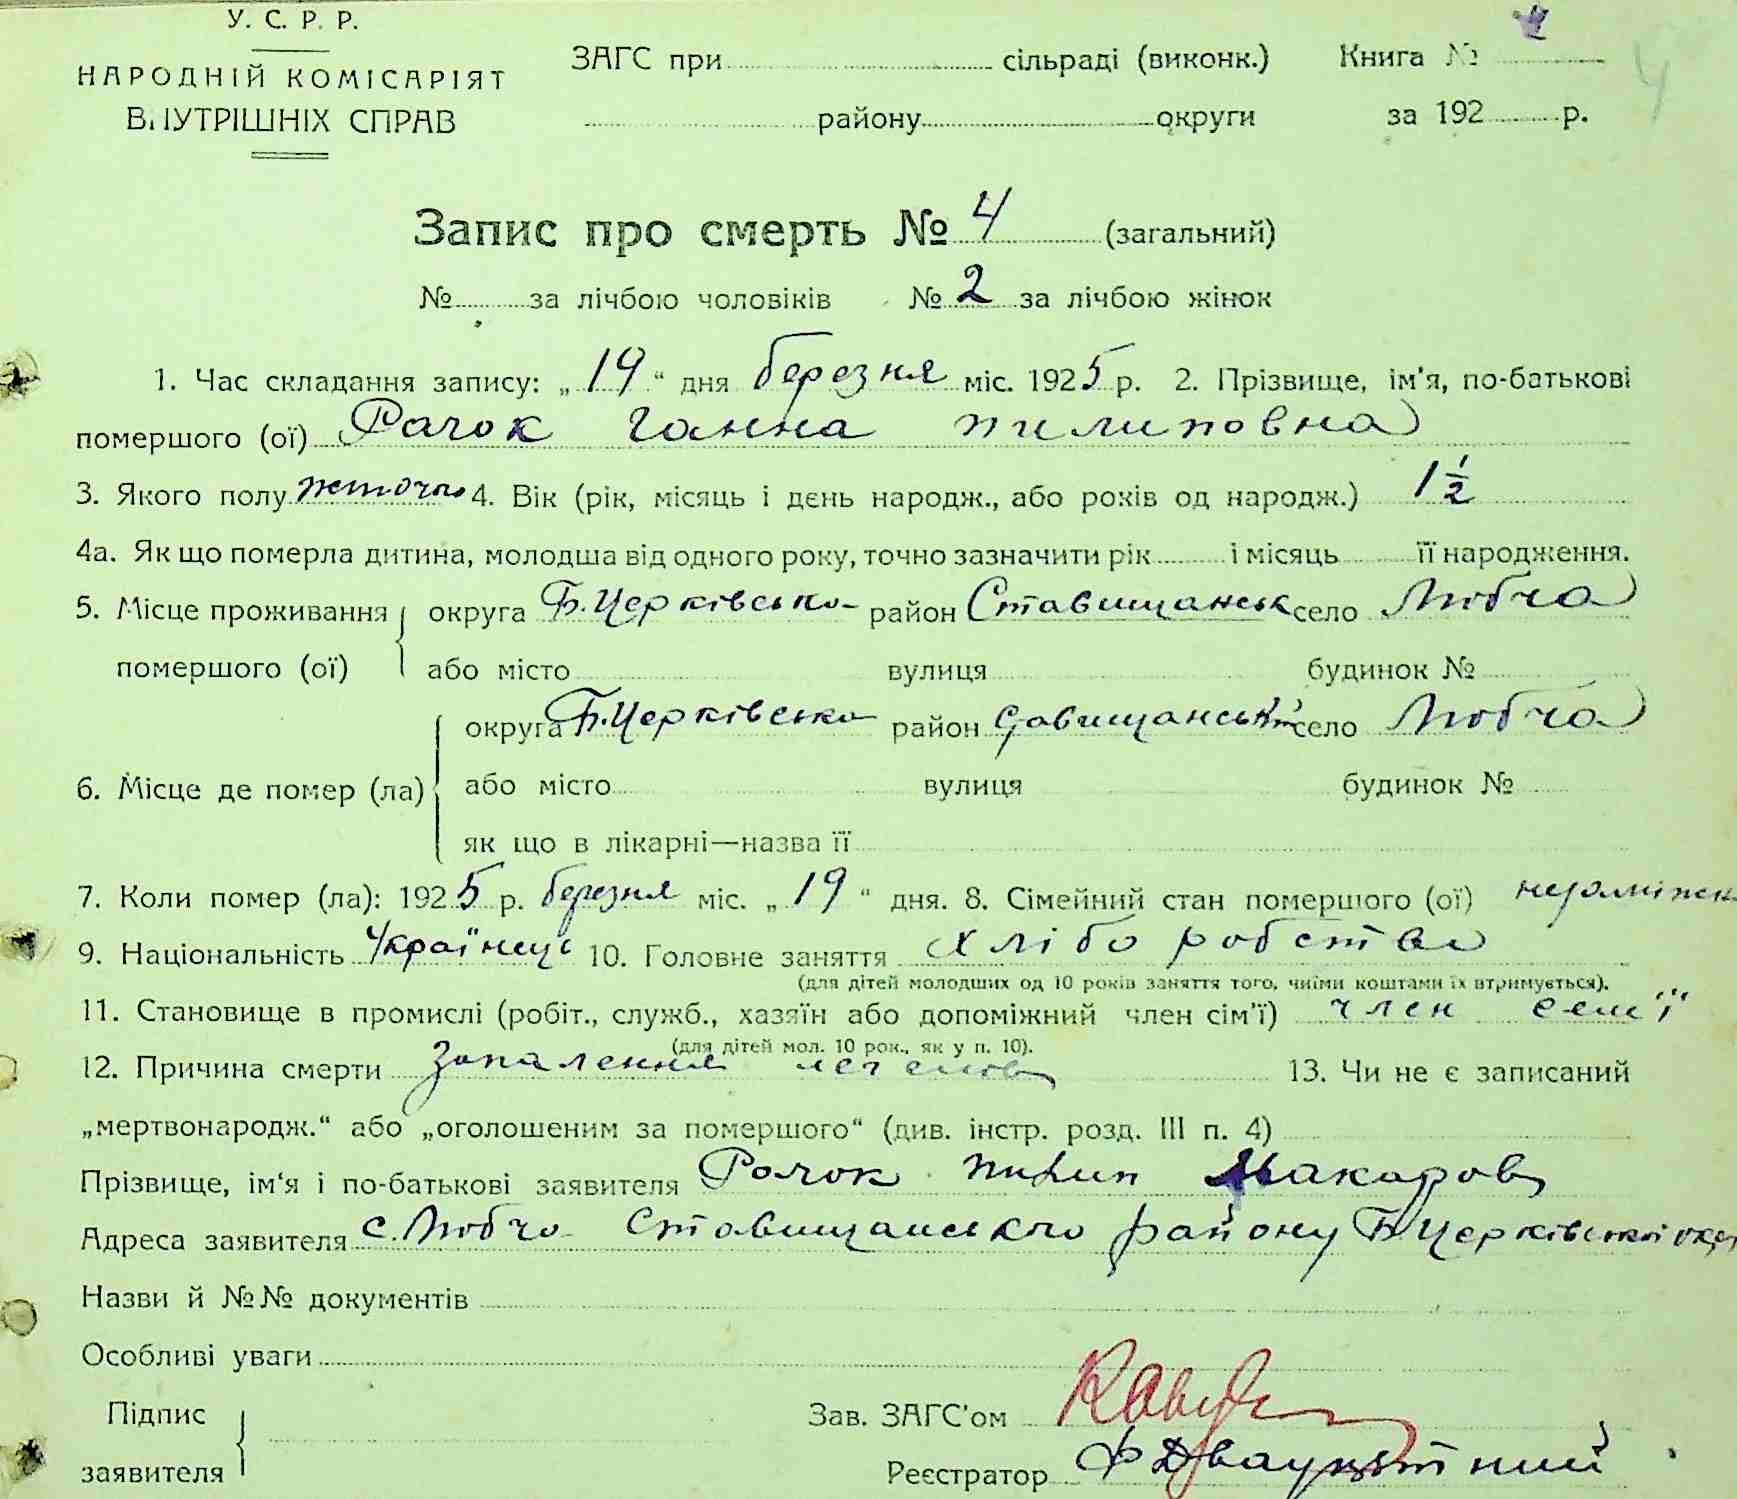 У. С. Р. Р.
НАРОДНІЙ КОМІСАРІЯТ
ВНУТРІШНІХ СПРАВ
ЗАГС при сільраді (виконк.) Книга №
району округи за 192 р.
4
Запис про смерть № 4 (загальний)
№ за лічбою чоловіків № 2 за лічбою жінок
1. Час складання запису: „19“ дня березня міс. 1925 р. 2. Прізвище, ім'я, по-батькові
помершого (ої) Рачок Ганна Пилиповна
3. Якого полу жіночы 4. Вік (рік, місяць і день народж., або років од народж.) 1 1/2
4а. Як що померла дитина, молодша від одного року, точно зазначити рік і місяць її народження.
5. Місце проживання округа Б.Церківська район Ставищанськ село Любча
помершого (ої) або місто вулиця будинок №
округа Б.Церківська район Ставищанськ село Любча
6. Місце де помер (ла) або місто вулиця будинок №
як що в лікарні—назва її
7. Коли помер (ла): 1925 р. березня міс. „19“ дня. 8. Сімейний стан помершого (ої)
9. Національність Українець 10. Головне заняття хліборобство
(для дітей молодших од 10 років заняття того, чиїми коштами їх втримується).
11. Становище в промислі (робіт., служб., хазяїн або допоміжний член сім'ї) член семʼї
(для дітей мол. 10 рок., як у п. 10).
12. Причина смерти Запалення легенів 13. Чи не є записаний
„мертвонародж.“ або „оголошеним за помершого“ (див. інстр. розд. III п. 4)
Прізвище, ім'я і по-батькові заявителя Рачок Пилип Макаров
Адреса заявителя с. Любча Ставищанського району Б Церківської окр
Назви й №№ документів
Особливі уваги
Підпис
заявителя
Зав. ЗАГС'ом
Реєстратор